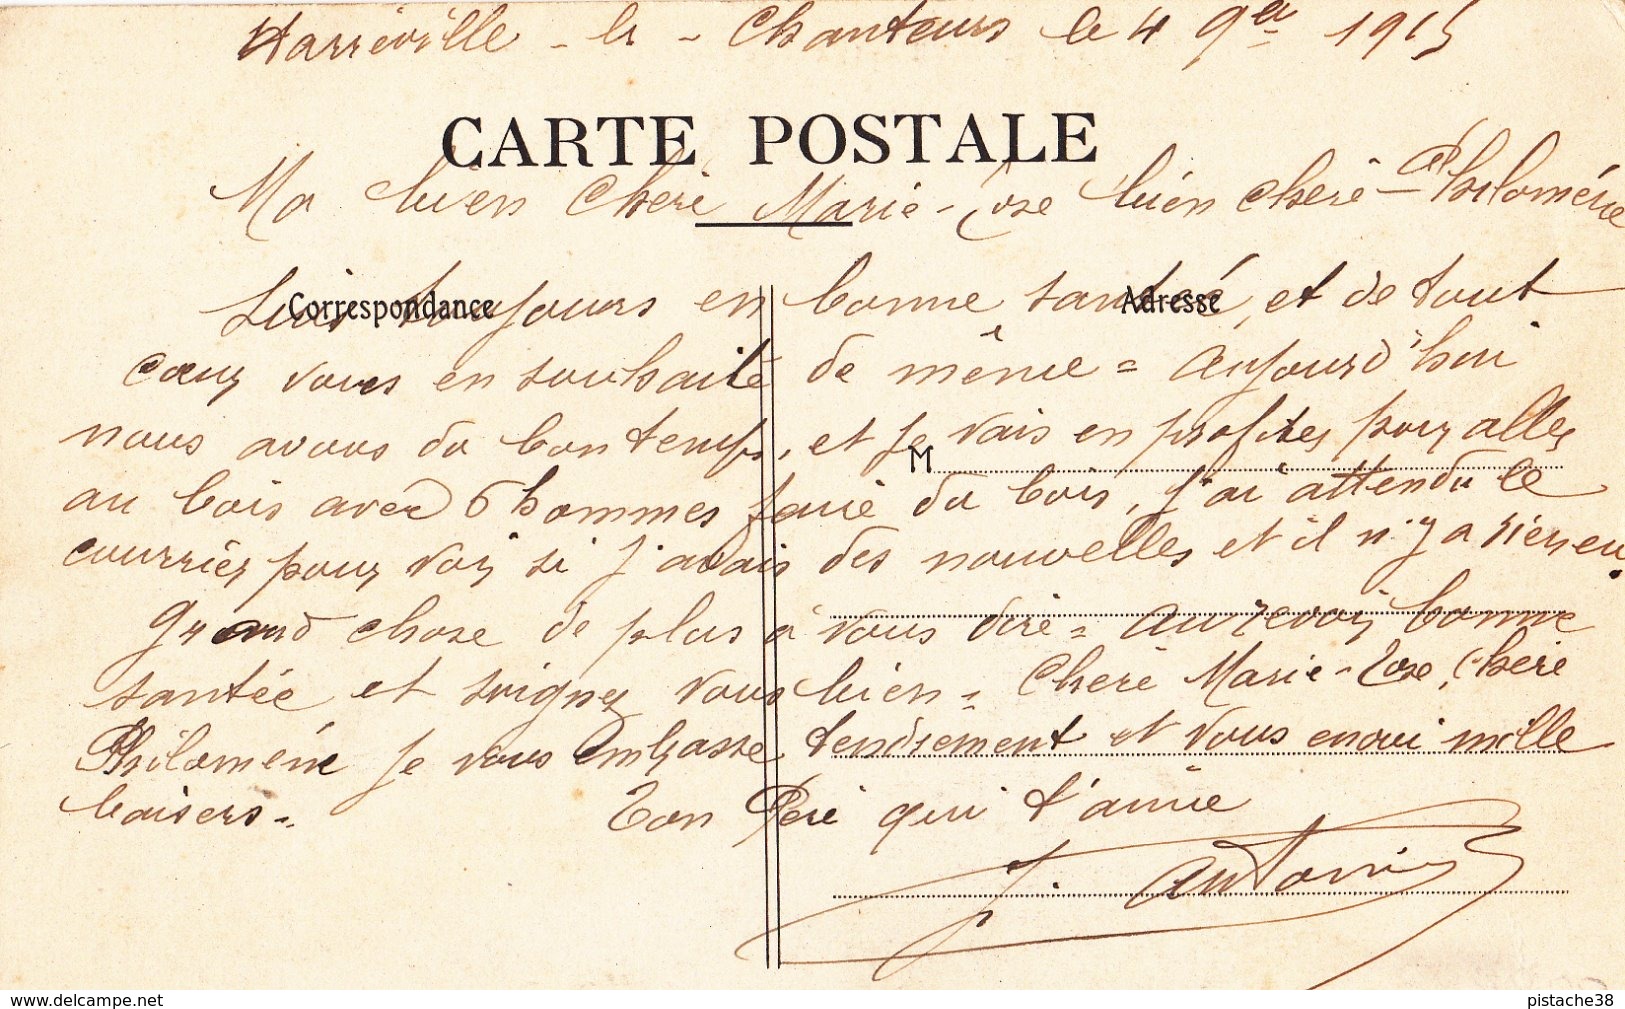 Harréville - les - Chanteurs le 4 9bre 1915
CARTE POSTALE
Ma bien Cheré Marie-Rose bien cheré Philoméne
Correspondance
Adresse
Suis toujours en bonne santée, et de tout
coeur vous en souhaite de même = aujourd'hui
nous avons du bon temps, et je vais en profiter pour aller
M
au bois avec 6 hommes faire du bois, j'ai attendu le
courrier pour voir si j'avais des nouvelles et il n'y a rien eu.
Grand chose de plus à vous dire = au revoir bonne
santée et soignez vous bien = Cheré Marie-Rose, Cheré
Philoméne je vous embrasse tendrement et vous envoi mille
baisers.- Ton Pere qui t'aime
J. Antonin
www.delcampe.net
pistache38